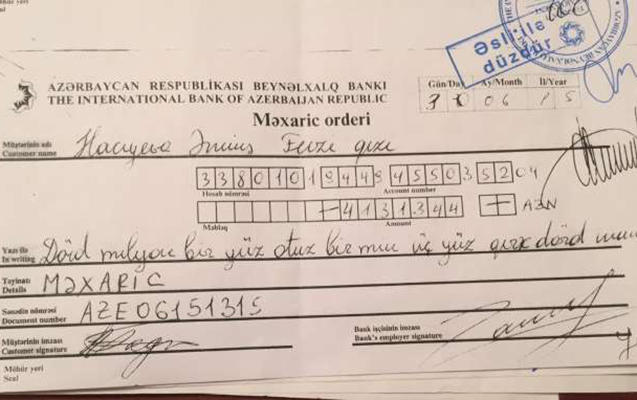 Möhür yeri
Seal
Əsli ilə
düzdür
AZƏRBAYCAN RESPUBLİKASI BEYNƏLXALQ BANKI
THE INTERNATIONAL BANK OF AZERBAIJAN REPUBLIC
Gün/Day Ay/Month İl/Year
06 15
Məxaric orderi
Müştərinin adı
Customer name
Hacıyeva
Hesab nömrəsi Account number
4131344 AZN
Məbləğ Amount
Yazı ilə
In writing
Dörd milyon bir yüz otuz bir min üç yüz qırx dörd
Təyinatı
Details
MƏXARİC
Sənədin nömrəsi
Document number
AZE06151315
Müştərinin imzası
Customer signature
Bank işçisinin imzası
Bank's employer signature
Möhür yeri
Seal